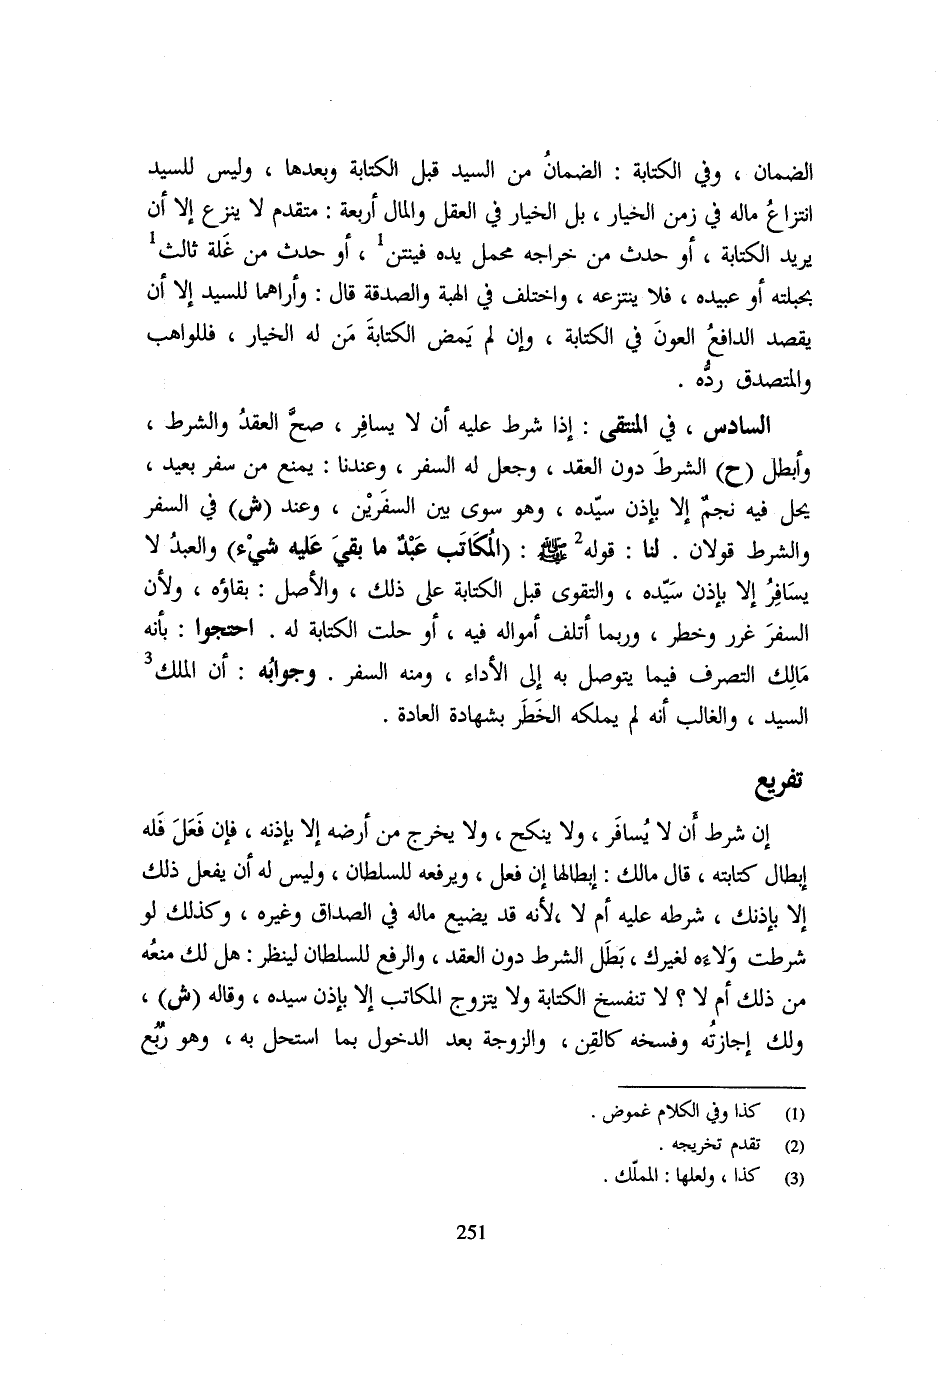 الضمان ، وفي الكتابة : الضمانُ من السيد قبل الكتابة وبعدها ، وليس للسيد
انتزاعُ ماله في زمن الخيار ، بل الخيار في العقل والمال أربعة : متقدم لا ينزع إلا أن
يريد الكتابة ، أو حدث من خراجه محمل يده فينتن1 ، أو حدث من غَلة ثالث1
بحبلته أو عبيده ، فلا ينتزعه ، واختلف في الهبة والصدقة قال : وأراهما للسيد إلا أن
يقصد الدافعُ العونَ في الكتابة ، وإن لم يَمض الكتابةَ مَن له الخيار ، فللواهب
والمتصدق ردُّه .
السادس ، في المنتقى : إذا شرط عليه أن لا يسافِر ، صحَّ العقدُ والشرط ،
وأبطل (ح) الشرطَ دون العقد ، وجعل له السفر ، وعندنا : يمنع من سفر بعيد ،
يحل فيه نجمٌ إلا بإذن سيّده ، وهو سوى بين السفَريْن ، وعند (ش) في السفر
والشرط قولان . لنا : قوله2 ﷺ : (المُكَاتَب عَبْدٌ ما بقيَ عَليه شيْء) والعبدُ لا
يسَافِرُ إلا بإذن سَيّده ، والتقوى قبل الكتابة على ذلك ، والأصل : بقاؤه ، ولأن
السفرَ غرر وخطر ، وربما أتلف أمواله فيه ، أو حلت الكتابة له . احتجوا : بأنه
مَالِك التصرف فيما يتوصل به إلى الأداء ، ومنه السفر . وجوابُه : أن الملك3
السيد ، والغالب أنه لم يملكه الخَطَر بشهادة العادة .
تفريع
إن شرط أَن لا يُسافَر ، ولا ينكح ، ولا يخرج من أرضه إلا بإذنه ، فإن فَعَلَ فَله
إبطال كتابته ، قال مالك : إبطالها إن فعل ، ويرفعه للسلطان ، وليس له أن يفعل ذلك
إلا بإذنك ، شرطه عليه أم لا ،لأنه قد يضيع ماله في الصداق وغيره ، وكذلك لو
شرطت وَلاءَه لغيرك ، بَطَل الشرط دون العقد ، والرفع للسلطان لينظر : هل لك منعُه
من ذلك أم لا ؟ لا تنفسخ الكتابة ولا يتزوج المكاتب إلا بإذن سيده ، وقاله (ش) ،
ولك إجازتُه وفسخه كالقِن ، والزوجة بعد الدخول بما استحل به ، وهو رُبُع
(1) كذا وفي الكلام غموض .
(2) تقدم تخريجه .
(3) كذا ، ولعلها : المملّك .
251